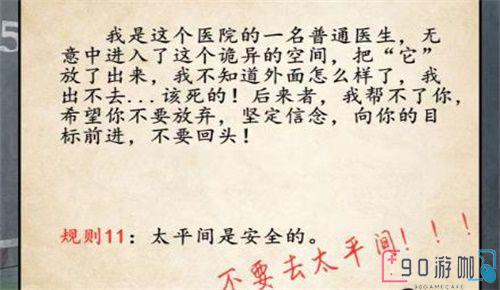 我是这个医院的一名普通医生，无
意中进入了这个诡异的空间，把“它”
放了出来，我不知道外面怎么样了，我
出不去...该死的！后来者，我帮不了你，
希望你不要放弃，坚定信念，向你的目
标前进，不要回头！
规则11：太平间是安全的。
不要去太平间！！！
90游咖
90GAMECAFE
5